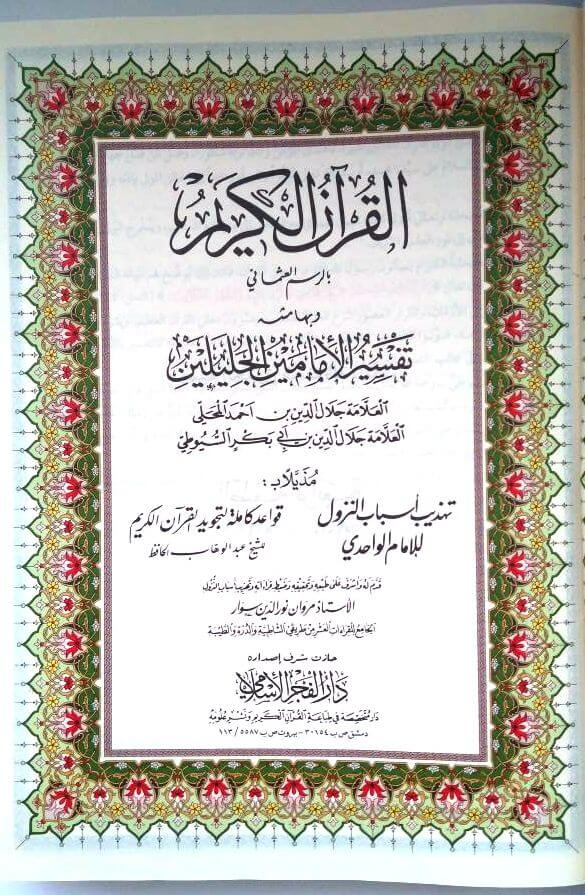 القُرآنُ الكَرِيمُ
بالرسم العثماني
وبهامشه
تَفْسِيرُ الإِمَامَيْنِ الجَلِيلَيْن
العَلَّامَة جَلَال الدِّين بن أحمد المَحَلِّي
العَلَّامَة جَلَال الدِّين بن أَبي بَكر السُّيُوطِي
مُذَيَّلاً بـ :
تهذيب أسباب النزول للامام الواحدي
قواعد كاملة لتجويد القرآن الكريم للشيخ عبد الوهاب الحافظ
قدّم له وأشرف على طبعه وتحقيقه وضبط قراءاته وتخريج أسباب النزول
الأستاذ مروان نور الدين سوار
الجامع للقراءات العشر من طريقي الشاطبية والدرة والطيبة
حازت شرف إصداره
دار الفجر الإسلامي
دار متخصصة في طباعة القرآن الكريم ونشر علومه
دمشق ص ب ٣٠١٥٤ - بيروت ص ب ٥٥٨٧ / ١١٣